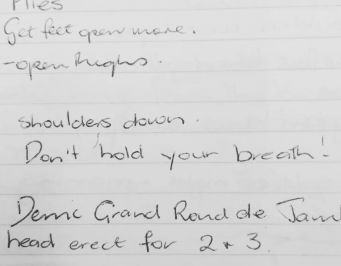 Plies
Get feet open more.
-open thighs.
shoulders down.
Don't hold your breath!
Demic Grand Rond de Jam
head erect for 2 + 3.